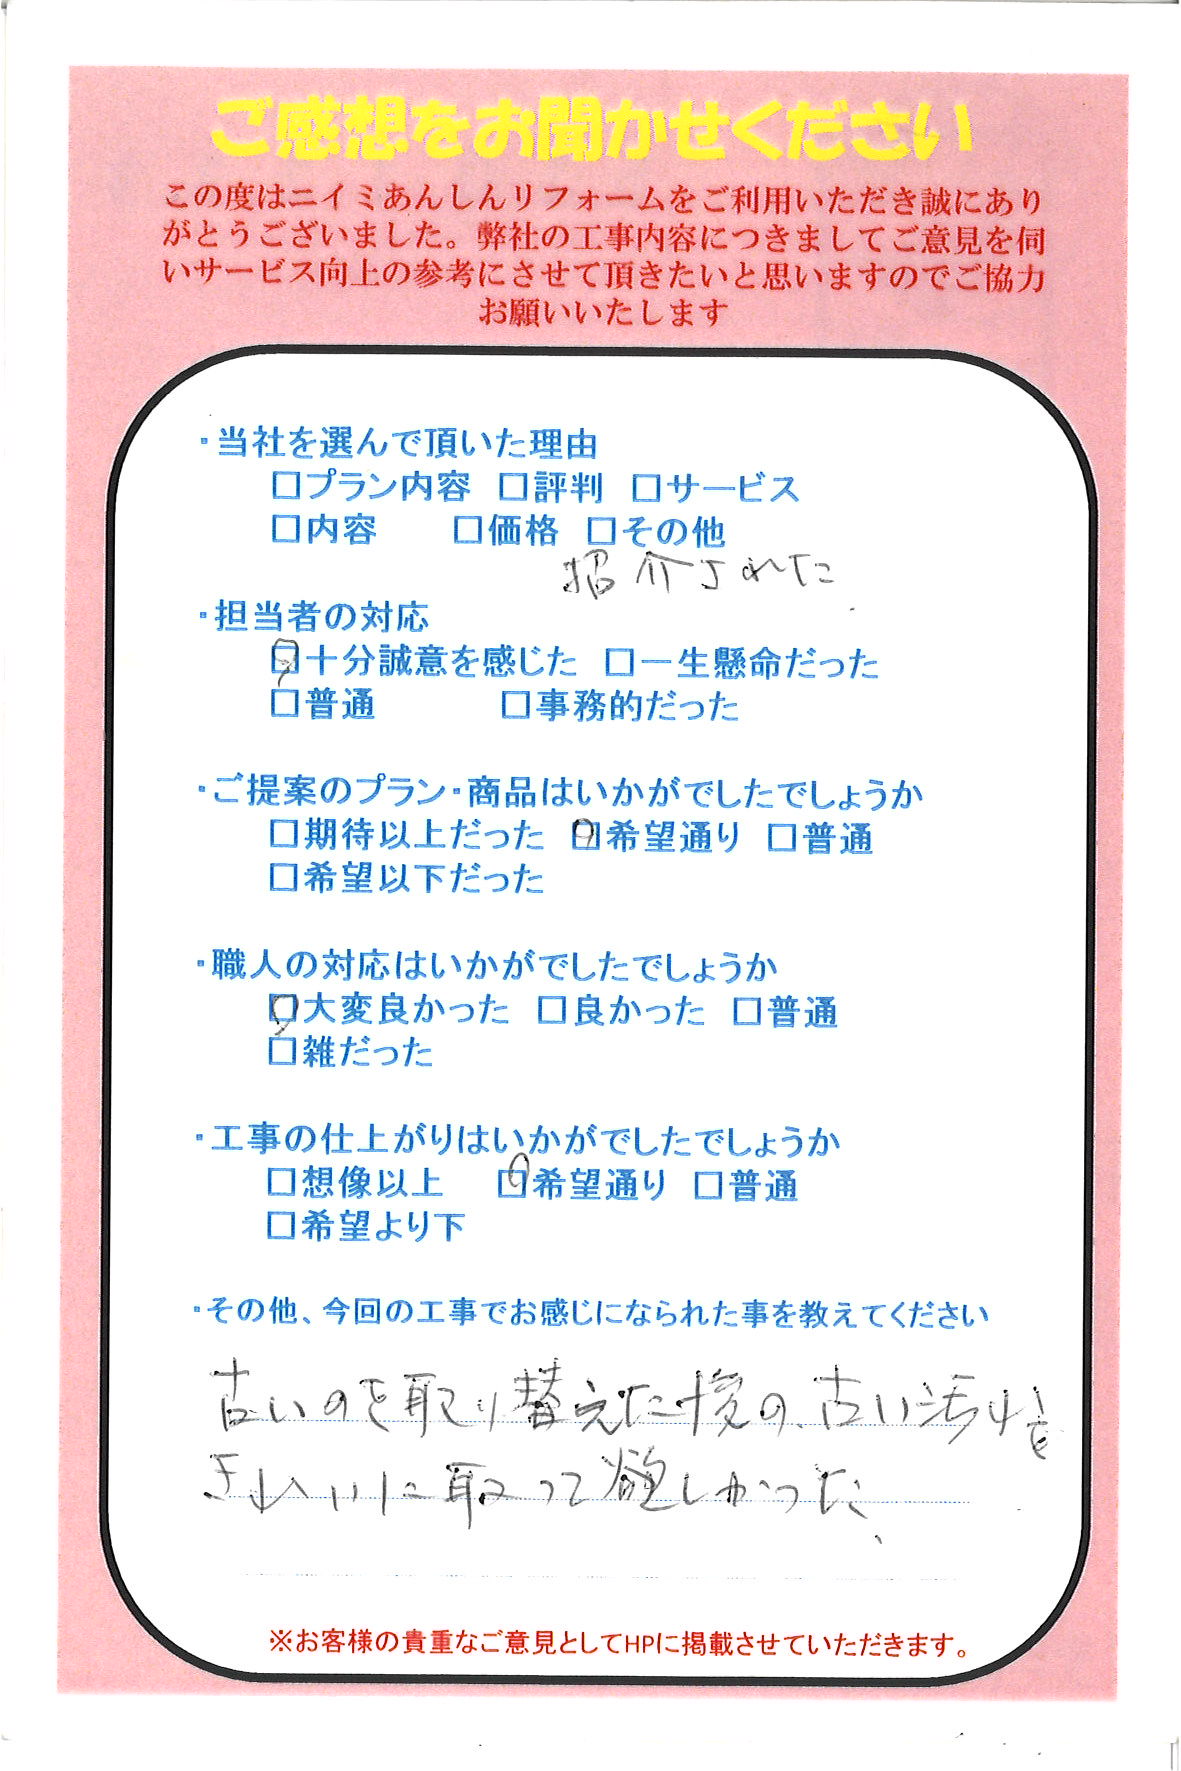 ご感想をお聞かせください
この度はニイミあんしんリフォームをご利用いただき誠にあり
がとうございました。弊社の工事内容につきましてご意見を伺
いサービス向上の参考にさせて頂きたいと思いますのでご協力
お願いいたします
・当社を選んで頂いた理由
□プラン内容 □評判 □サービス
□内容 □価格 □その他
紹介された
・担当者の対応
□十分誠意を感じた □一生懸命だった
□普通 □事務的だった
・ご提案のプラン・商品はいかがでしたでしょうか
□期待以上だった □希望通り □普通
□希望以下だった
・職人の対応はいかがでしたでしょうか
□大変良かった □良かった □普通
□雑だった
・工事の仕上がりはいかがでしたでしょうか
□想像以上 □希望通り □普通
□希望より下
・その他、今回の工事でお感じになられた事を教えてください
古いのを取り替えた後の古い汚れを
きれいに取って欲しかった、
※お客様の貴重なご意見としてHPに掲載させていただきます。